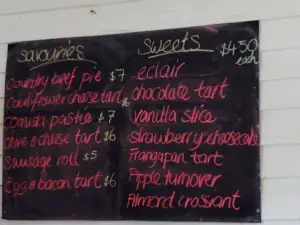 Savouries
Country beef pie $7
Cauliflower cheese tart $6
Cornish pastie $7
cheese tart $6
Sausage roll $5
Egg & bacon tart $6
Sweets $4.50 each
eclair
chocolate tart
vanilla slice
strawberry cheesecake
Frangapan tart
Apple turnover
Almond croissant